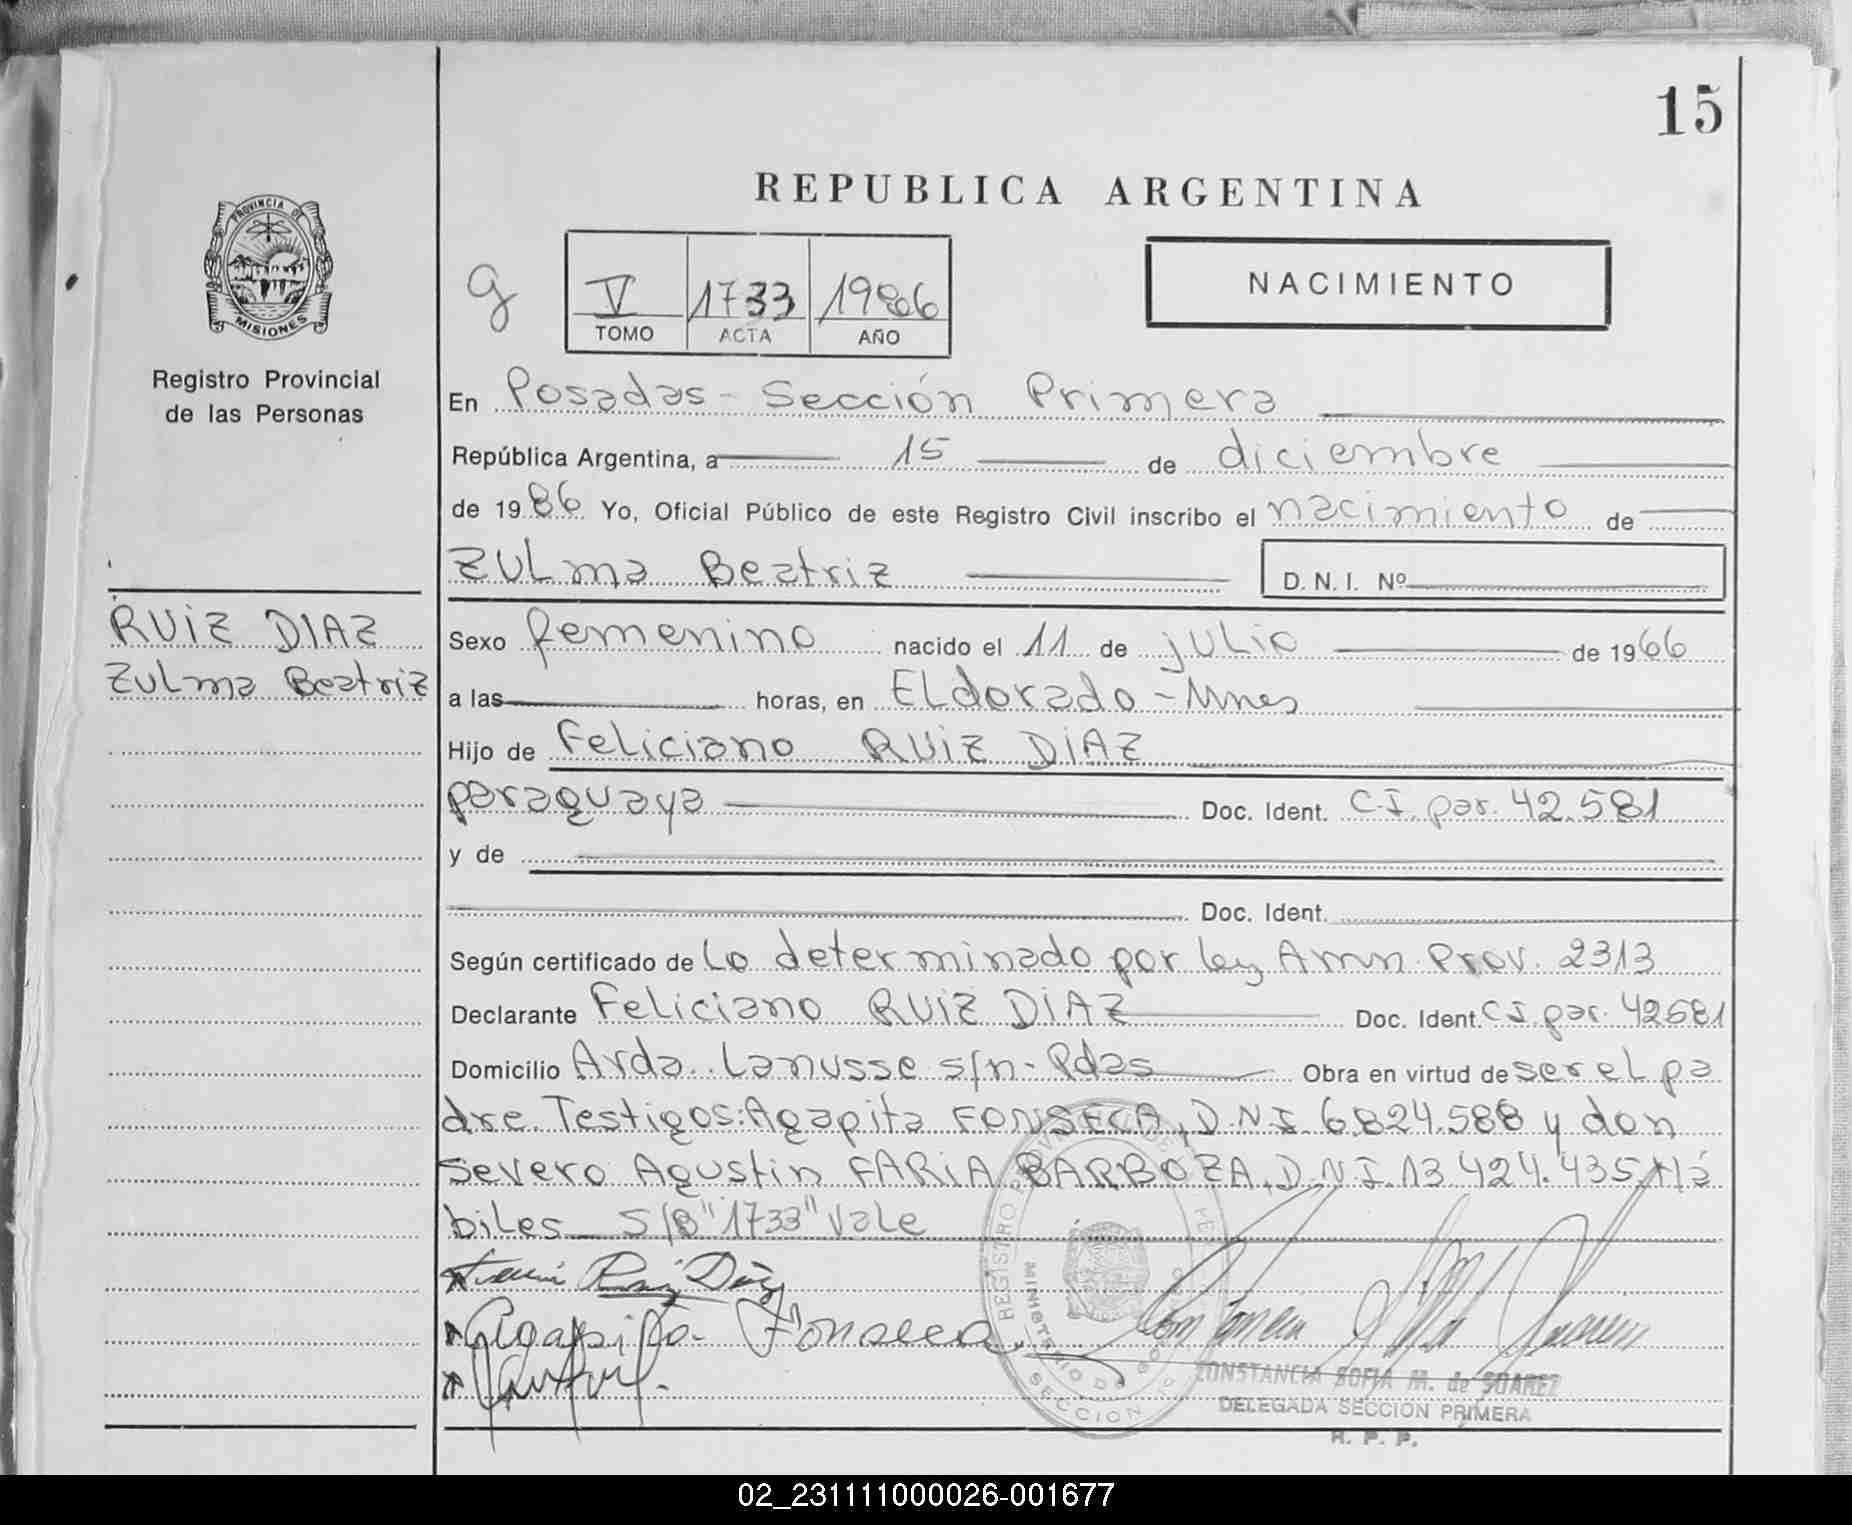 15
REPUBLICA ARGENTINA
PROVINCIA DE
MISIONES
Registro Provincial
de las Personas
g
V 1733 1986
TOMO ACTA AÑO
NACIMIENTO
En Posadas - Sección Primera
República Argentina, a 15 de diciembre
de 1986 Yo, Oficial Público de este Registro Civil inscribo el nacimiento de
Zulma Beatriz D. N. I. Nº
RUIZ DIAZ
Zulma Beatriz
Sexo femenino nacido el 11 de julio de 1966
a las horas, en Eldorado - Mnes
Hijo de Feliciano RUIZ DIAZ
paraguaya Doc. Ident. C.I. par. 42.581
y de
Doc. Ident.
Según certificado de Lo determinado por ley Amn. Prov. 2313
Declarante Feliciano RUIZ DIAZ Doc. Ident. C.I. par. 42581
Domicilio Avda. Lanusse s/n - Pdas Obra en virtud de ser el pa
dre. Testigos: Agapita FONSECA, D.N.I. 6.824.588 y don
Severo Agustin FARIA BARBOZA, D.N.I. 13.424.435. Há
biles S/B "1733" Vale
Ruiz Diaz
Agapita Fonseca
CONSTANCIA SOFIA M. de SUAREZ
DELEGADA SECCION PRIMERA
R. P. P.
02_231111000026-001677